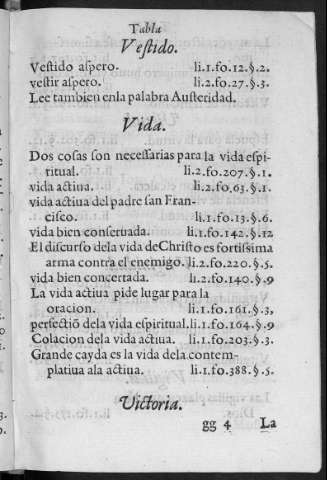 Tabla
Vestido.
Vestido aspero. li.1.fo.12.§.2.
vestir aspero. li.2.fo.27.§.3.
Lee tambien enla palabra Austeridad.
Vida.
Dos cosas son necessarias para la vida espi-
ritual. li.2.fo.207.§.1.
vida actiua. li.2.fo.63.§.1.
vida actiua del padre san Fran-
cisco. li.1.fo.13.§.6.
vida bien conseruada. li.1.fo.142.§.12
El discurso dela vida de Christo es fortissima
arma contra el enemigo. li.2.fo.220.§.5.
vida bien concertada. li.2.fo.140.§.9
La vida actiua pide lugar para la
oracion. li.1.fo.161.§.3,
perfectiõ dela vida espiritual. li.1.fo.164.§.9
Colacion dela vida actiua. li.1.fo.203.§.3.
Grande cayda es la vida dela contem-
platiua ala actiua. li.1.fo.388.§.5.
Victoria.
gg 4 La